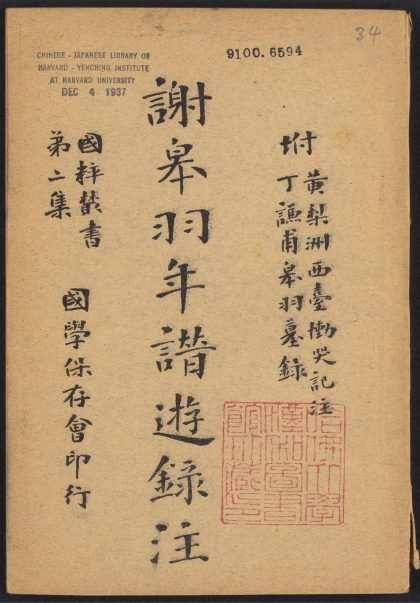 34
9100.6594
CHINESE - JAPANESE LIBRARY OF
HARVARD - YENCHING INSTITUTE
AT HARVARD UNIVERSITY
DEC 4 1937
坿
黃梨洲西臺慟哭記注
丁謙甫皋羽墓錄
謝皋羽年譜遊錄注
國粹叢書
第二集
國學保存會印行
哈佛大學
漢和圖書
館珍藏印